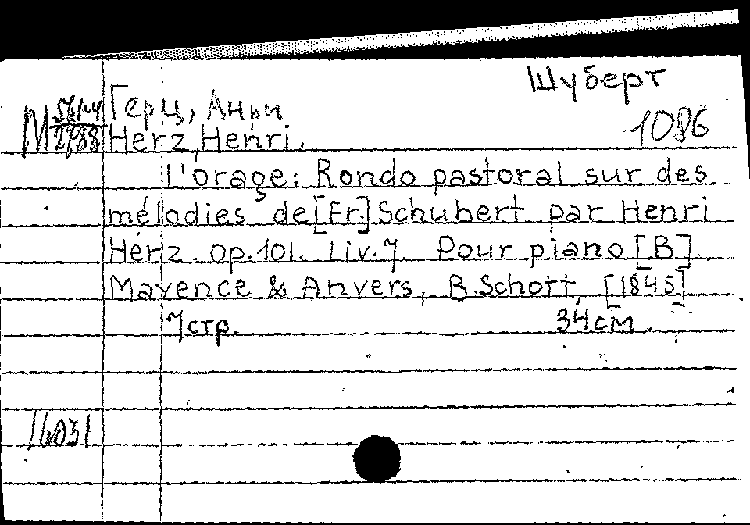 Шуберт
Герц, Анри
1086
Herz, Henri.
L'orage: Rondo pastoral sur des
mélodies de [Fr.] Schubert par Henri
Herz. Op. 101. Liv. 7 Pour piano [B]
Mayence & Anvers, B. Schott, [1845]
7 стр. 34 см.